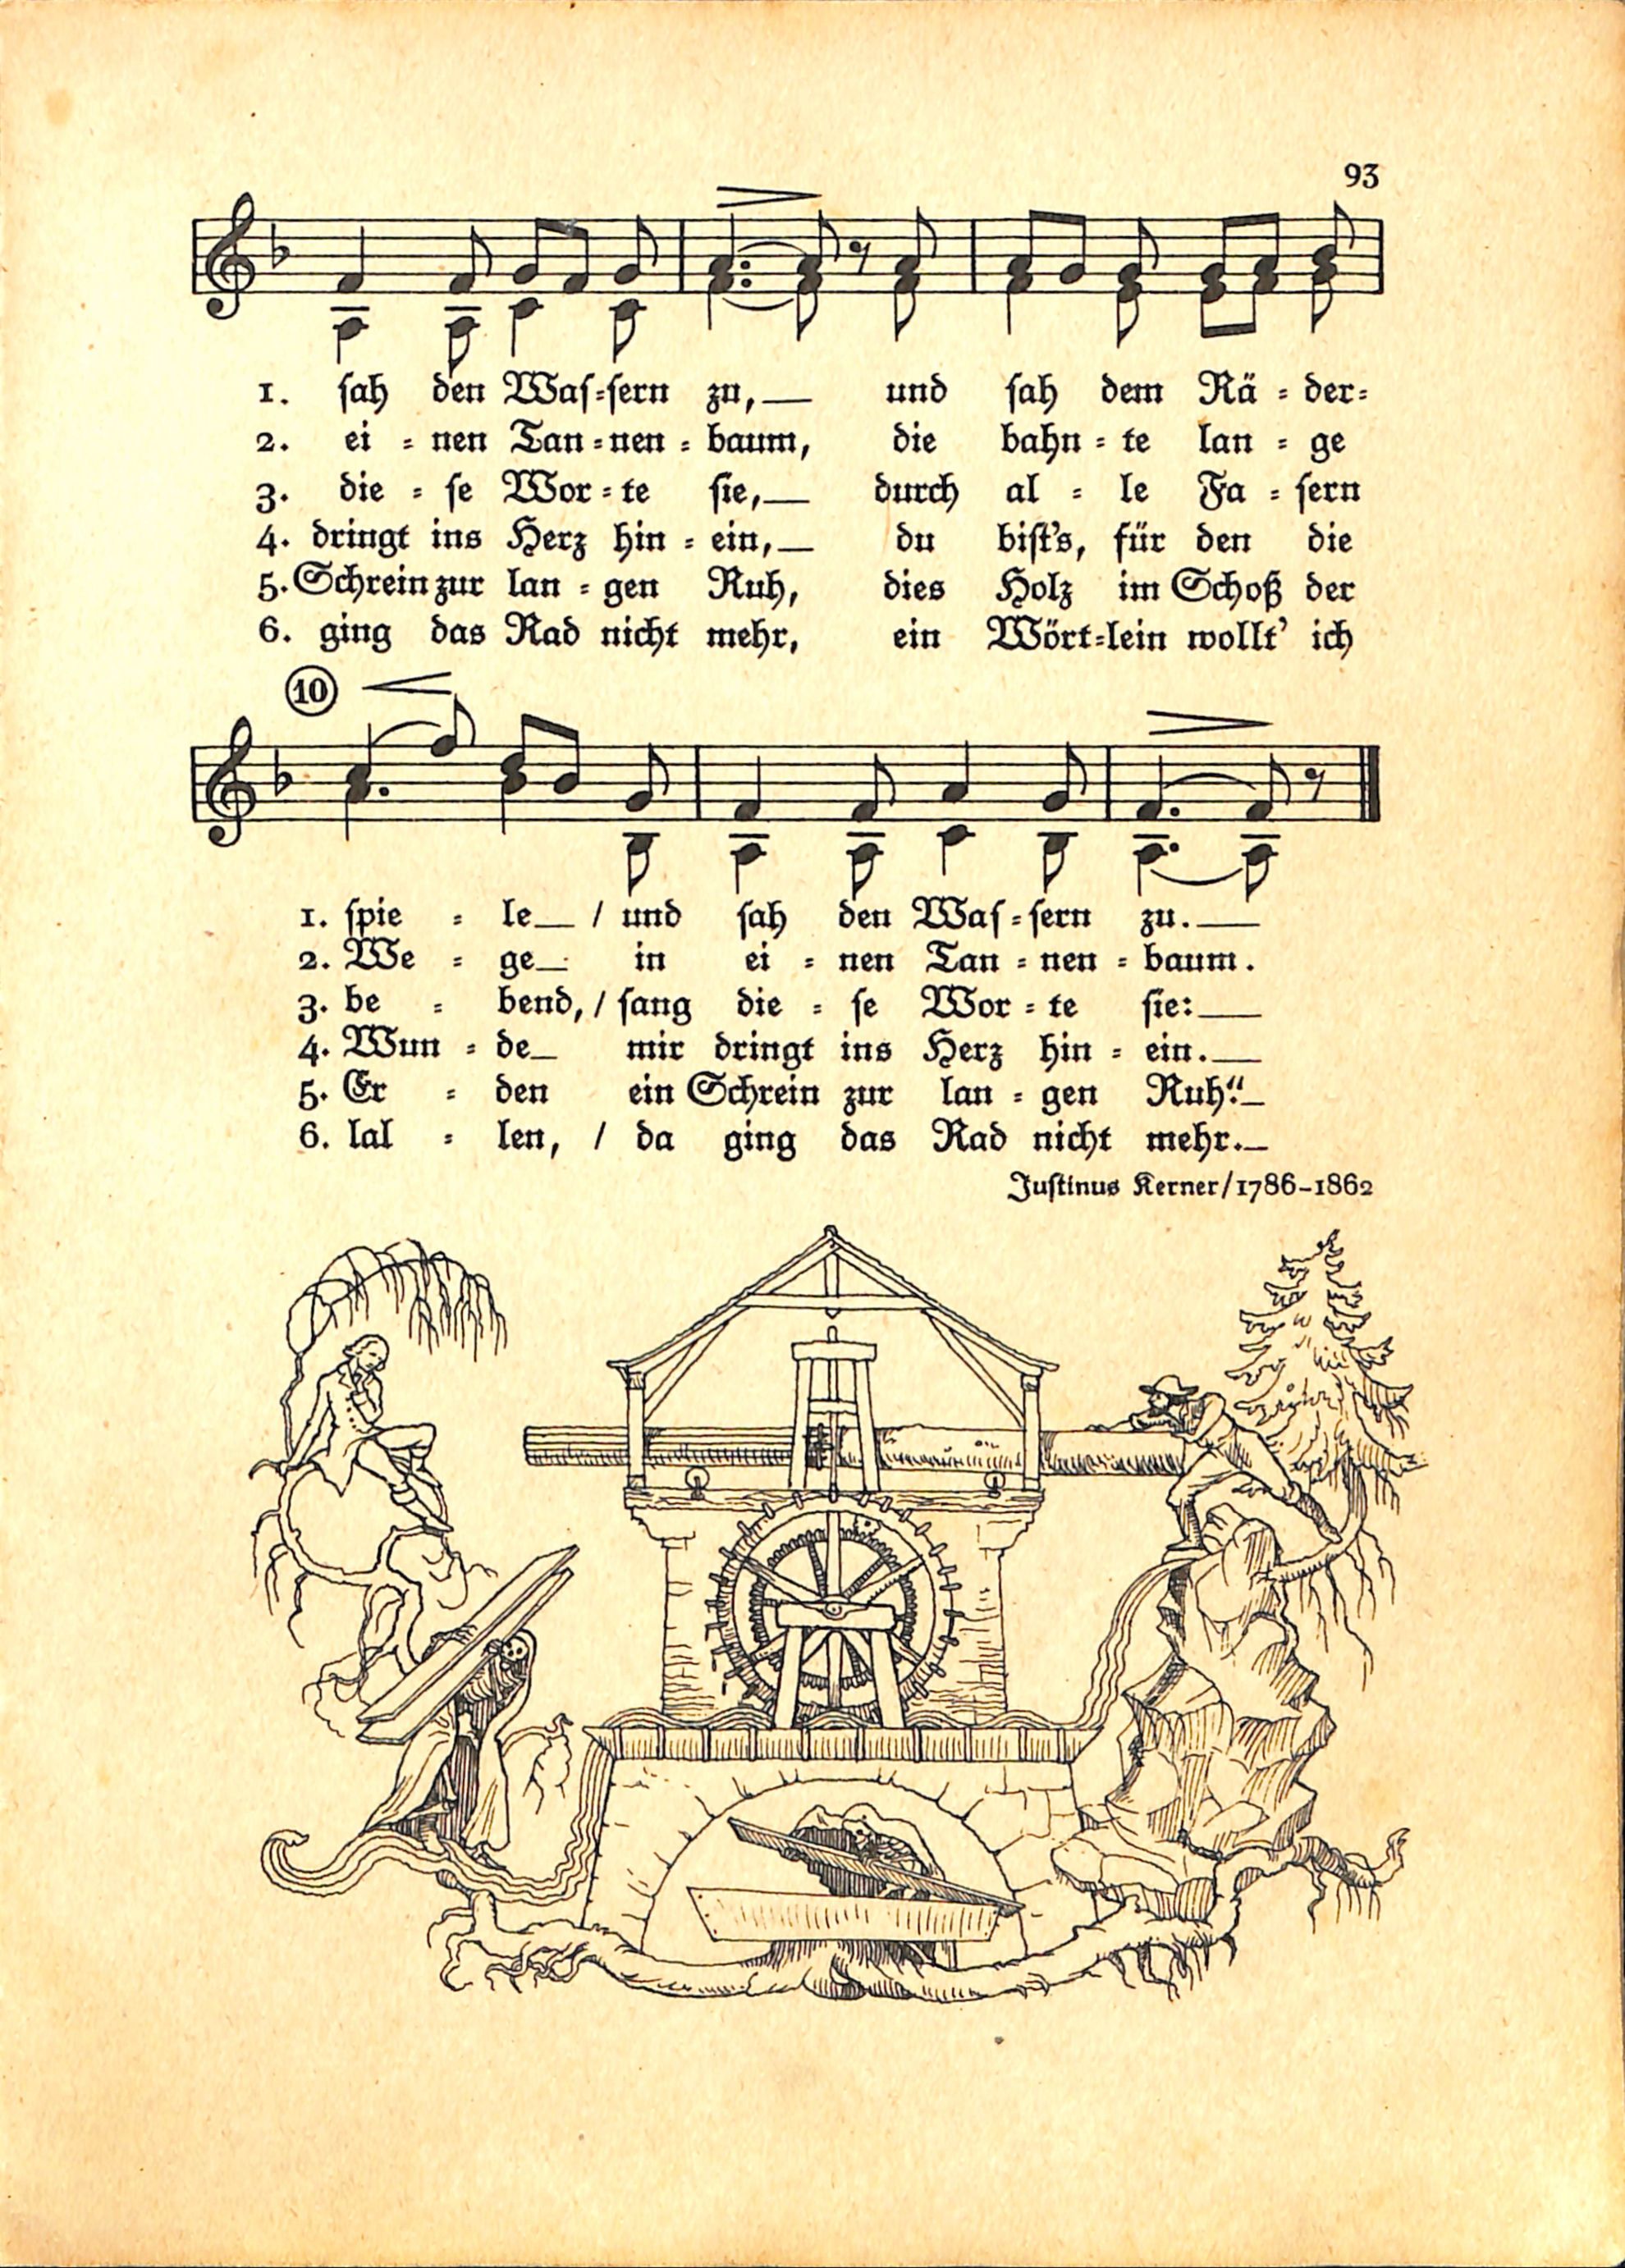 93
1. sah den Was-sern zu, und sah dem Rä-der-
2. ei-nen Tan-nen-baum, die bahn-te lan-ge
3. die-se Wor-te sie, durch al-le Fa-sern
4. dringt ins Herz hin-ein, du bist's, für den die
5. Schrein zur lan-gen Ruh, dies Holz im Schoß der
6. ging das Rad nicht mehr, ein Wört-lein wollt' ich
10
1. spie-le / und sah den Was-sern zu.
2. We-ge in ei-nen Tan-nen-baum.
3. be-bend, / sang die-se Wor-te sie:
4. Wun-de mir dringt ins Herz hin-ein.
5. Er-den ein Schrein zur lan-gen Ruh.“
6. lal-len, / da ging das Rad nicht mehr.
Justinus Kerner/1786-1862